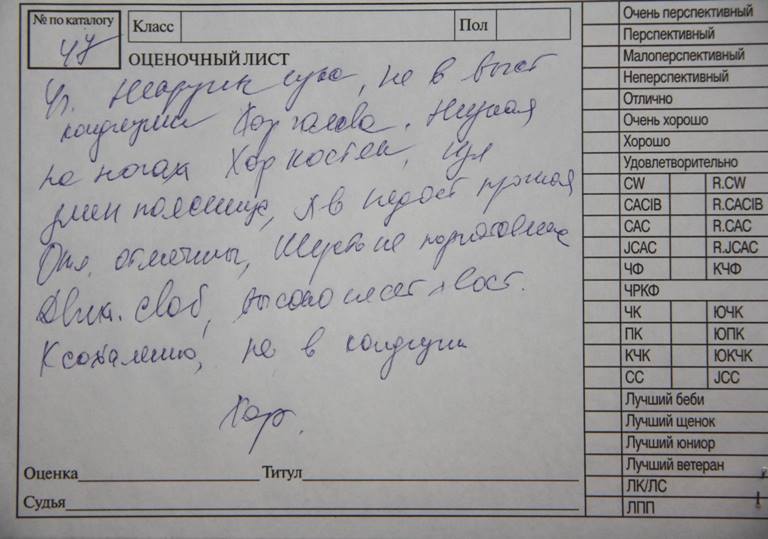 № по каталогу
47
Класс
Пол
ОЦЕНОЧНЫЙ ЛИСТ
сука, не в выст
кондиции Хор голова. Низкая
на ногах Хор костяк,
поясница, хв недост прямая
отмечины, Шерсть не подготовлена
Движ. своб, высоко несет хвост.
К сожалению, не в кондиции
Хор.
Оценка
Титул
Судья
Очень перспективный
Перспективный
Малоперспективный
Неперспективный
Отлично
Очень хорошо
Хорошо
Удовлетворительно
CW R.CW
CACIB R.CACIB
CAC R.CAC
JCAC R.JCAC
ЧФ КЧФ
ЧРКФ
ЧК ЮЧК
ПК ЮПК
КЧК ЮКЧК
СС JCC
Лучший беби
Лучший щенок
Лучший юниор
Лучший ветеран
ЛК/ЛС
ЛПП